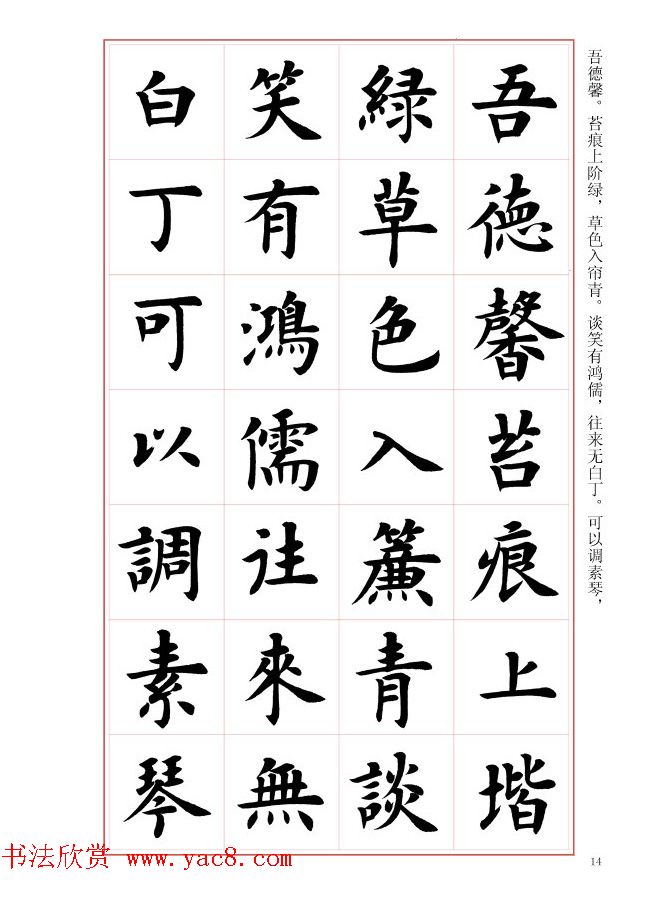 吾德馨苔痕上堦
綠草色入簾青談
笑有鴻儒往來無
白丁可以調素琴
吾德馨。苔痕上阶绿，草色入帘青。谈笑有鸿儒，往来无白丁。可以调素琴，
书法欣赏 www.yac8.com
14